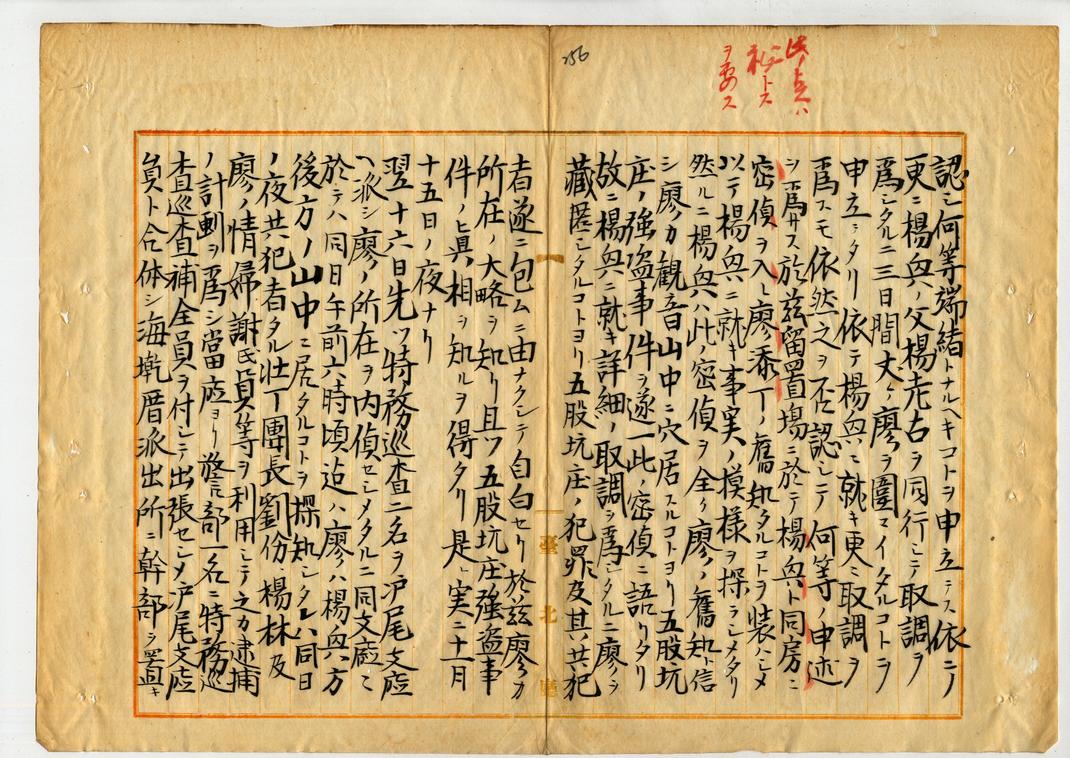 此ノ点ハ
秘トス
ヲ要ス
256
認シ何等端緒トナルヘキコトヲ申立テス依ニノ
更ニ楊典ノ父楊老古ヲ同行シテ取調ヲ
爲シタルニ三日間丈ケ廖ヲ圍マイタルコトヲ
申立ヿタリ依テ楊典ニ就キ更ニ取調ヲ
爲スモ依然之ヲ否認シテ何等ノ申述
ヲ爲サス於玆留置場ニ於テ楊典ト同房ニ
密偵ヲ入レ廖添丁ノ舊知タルコトヲ裝ハシメ
以テ楊典ニ就キ事実ノ模樣ヲ探ラシメタリ
然ルニ楊典ハ此密偵ヲ全ク廖ノ舊知ト信
シ廖カ観音山中ニ穴居スルコトヨリ五股坑
庄ノ強盗事件ヲ遂一此ノ密偵ニ語リタリ
故ニ楊典ニ就キ詳細ノ取調ヲ爲シタルニ廖ヲ
藏匿シタルコトヨリ五股坑庄ノ犯罪及其共犯
者遂ニ包ムニ由ナクシテ自白セリ於玆廖カ
所在ノ大略ヲ知リ且ツ五股坑庄強盗事
件ノ眞相ヲ知ルヲ得タリ是レ実ニ十一月
十五日ノ夜ナリ
翌十六日先ツ特務巡査二名ヲ滬尾支廳
ヘ派シ廖ノ所在ヲ内偵セシメタルニ同支廳ニ
於テハ同日午前六時頃迠ハ廖ハ楊典ハ方
後方ノ山中ニ居タルコトヲ探知シタルハ同日
ノ夜共犯者タル壮丁團長劉份、楊林及
廖ノ情婦謝氏員等ヲ利用シテ之カ逮捕
ノ計劃ヲ爲シ當廳ヨリ警部一名ニ特務巡
査巡査補全員ヲ付シテ出張セシメ滬尾支廳
員ト合体シ海墘厝派出所ニ幹部ヲ置キ
臺北廳